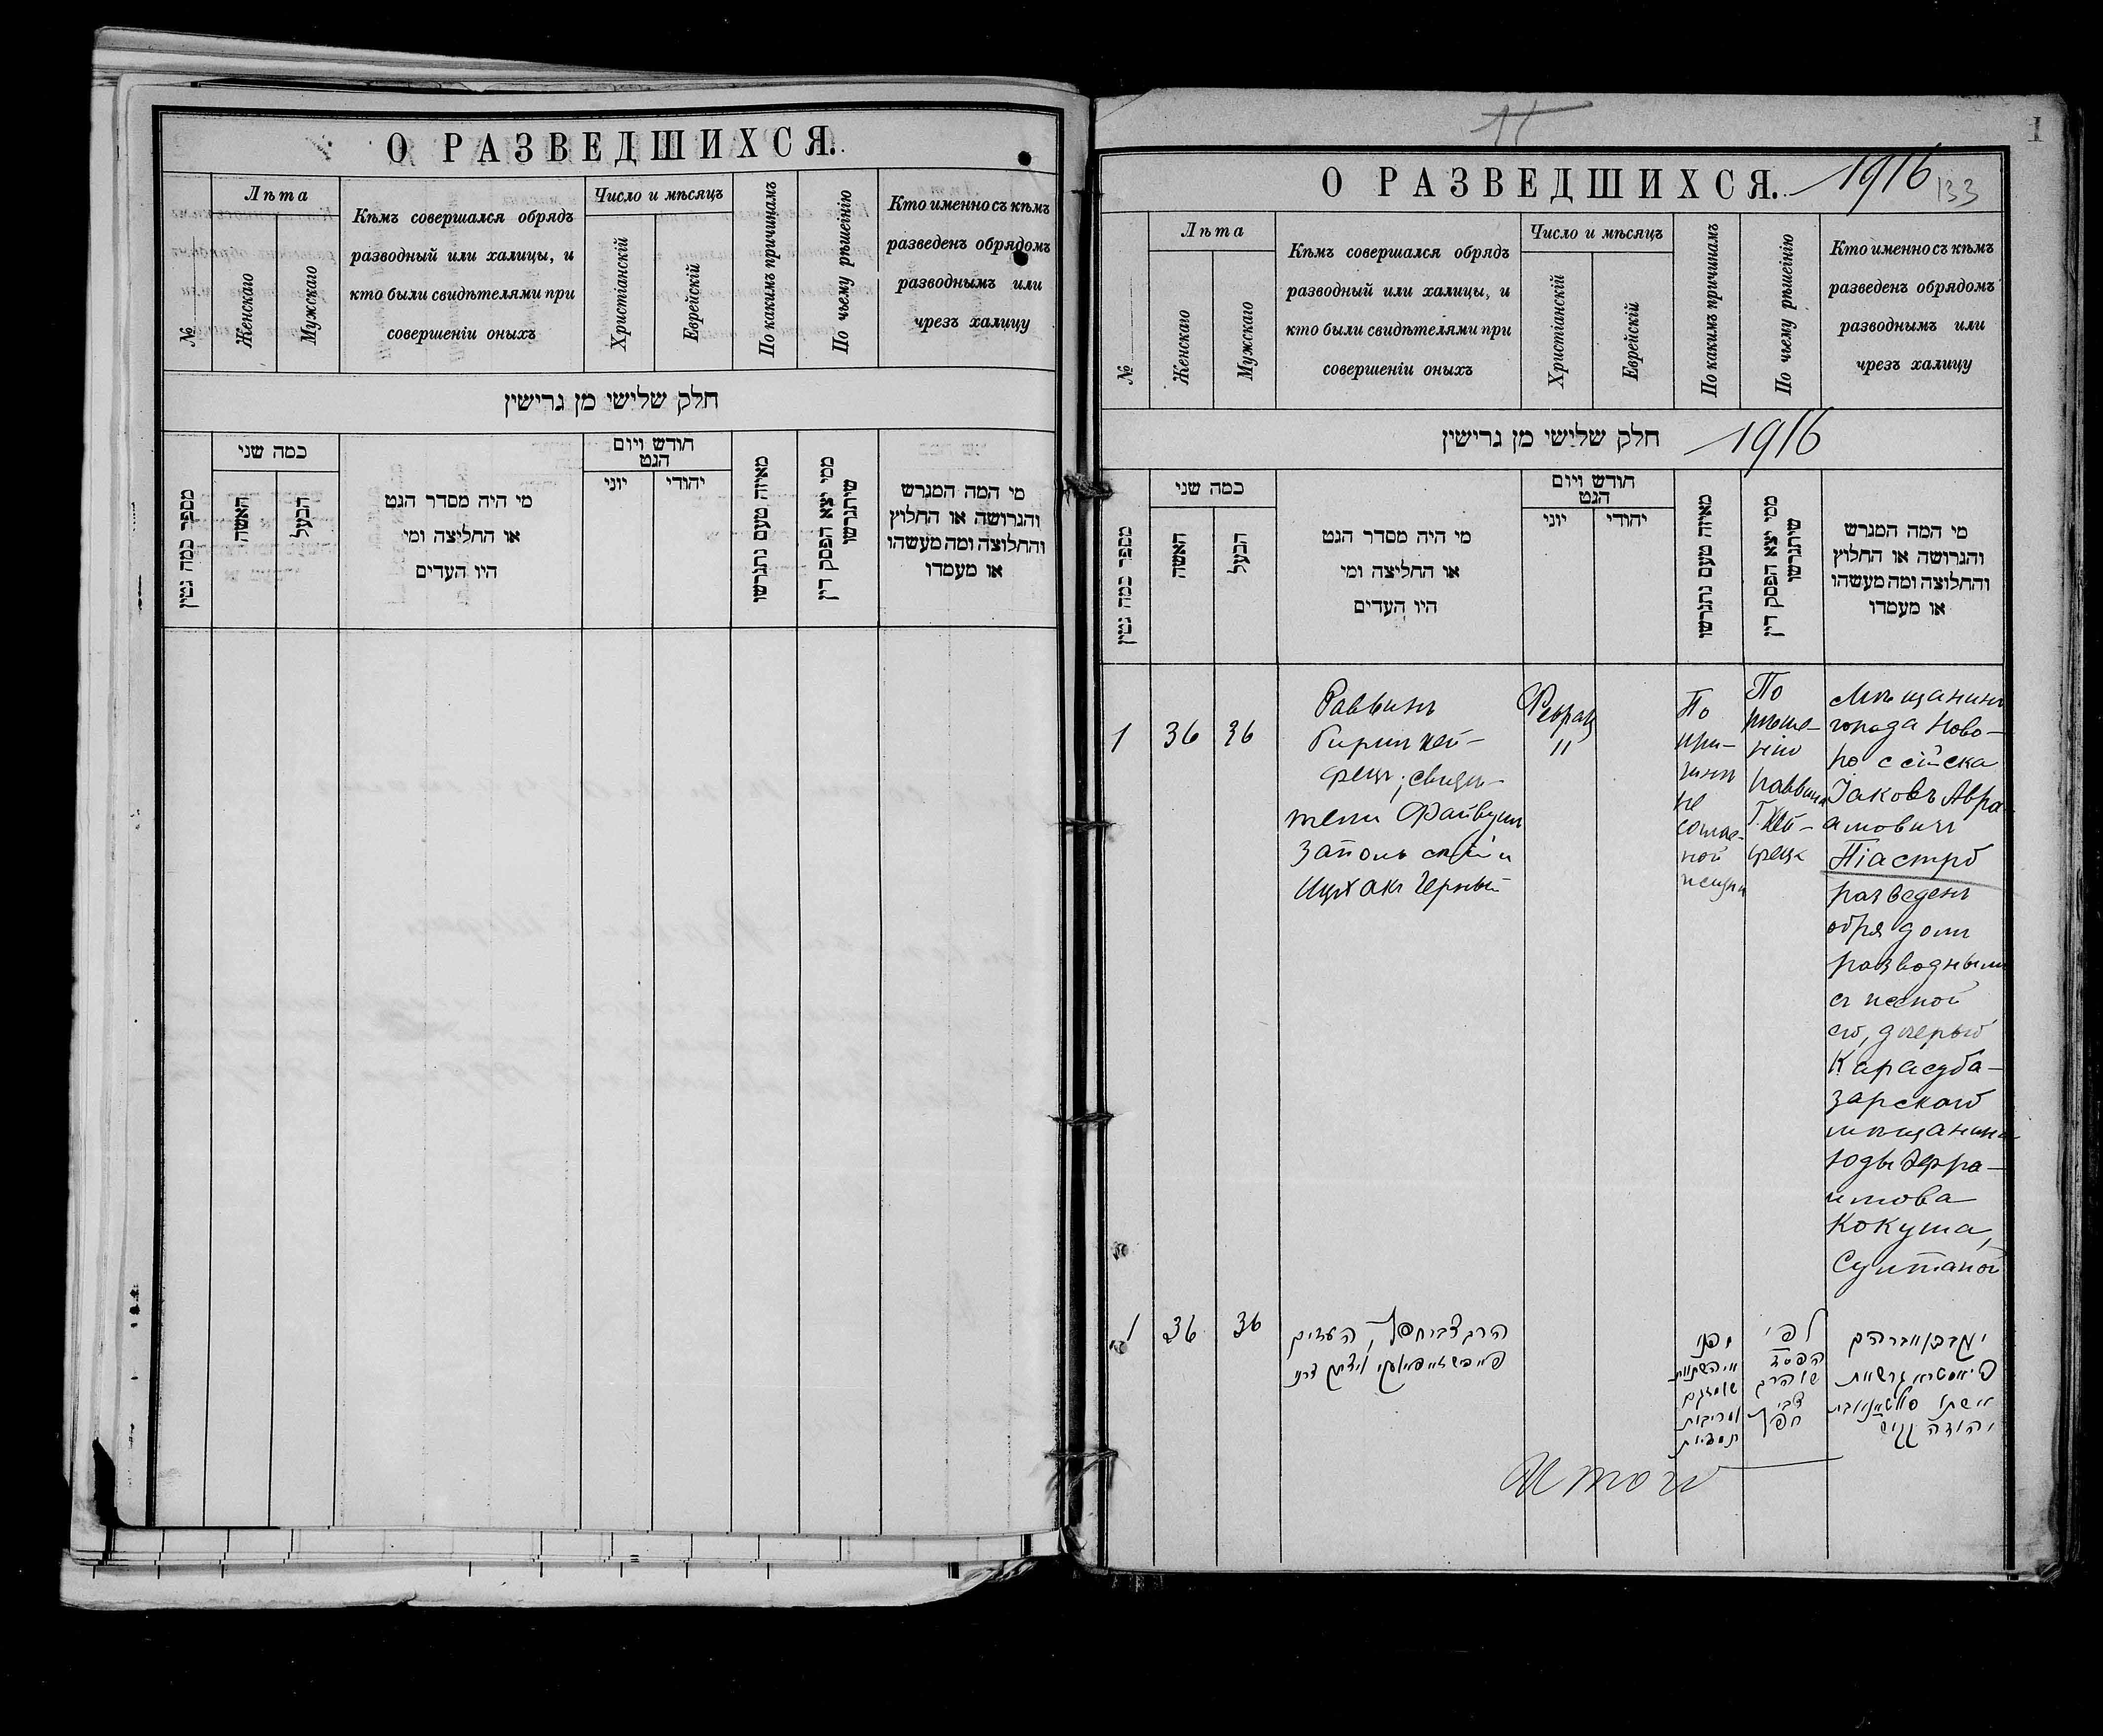 О РАЗВЕДШИХСЯ.
№
Лѣта
Женскаго
Мужскаго
Кѣмъ совершался обрядъ
разводный или халицы, и
кто были свидѣтелями при
совершеніи оныхъ
Число и мѣсяцъ
Христіанскій
Еврейскій
По какимъ причинамъ
По чьему рѣшенію
Кто именно съ кѣмъ
разведенъ обрядомъ
разводнымъ или
чрезъ халицу
חלק שלישי מן גרישין
מספר כמה גטין
כמה שני
האשה
הבעל
מי היה מסדר הגט
או החליצה ומי
היו העדים
חודש ויום
הגט
יוני
יהודי
מאיזה טעם נתגרשו
ממי יצא הפסק דין
שיתגרשו
מי המה המגרש
והגרושה או החלוץ
והחלוצה ומה מעשהו
או מעמדו
1
О РАЗВЕДШИХСЯ. 1916
133
№
Лѣта
Женскаго
Мужскаго
Кѣмъ совершался обрядъ
разводный или халицы, и
кто были свидѣтелями при
совершеніи оныхъ
Число и мѣсяцъ
Христіанскій
Еврейскій
По какимъ причинамъ
По чьему рѣшенію
Кто именно съ кѣмъ
разведенъ обрядомъ
разводнымъ или
чрезъ халицу
חלק שלישי מן גרישין 1916
מספר כמה גטין
כמה שני
האשה
הבעל
מי היה מסדר הגט
או החליצה ומי
היו העדים
חודש ויום
הגט
יוני
יהודי
מאיזה טעם נתגרשו
ממי יצא הפסק דין
שיתגרשו
מי המה המגרש
והגרושה או החלוץ
והחלוצה ומה מעשהו
או מעמדו
1
36
36
Раввинъ
свидѣ-
тели Файвушъ
Запольскій и
Ицхакъ Черный
11
По
при-
чинѣ
не
соглас-
ной
По
рѣше-
нію
раввина
Мѣщанинъ
города Ново-
россійска
Іаковъ Авра-
амовичъ
Піастро
разведенъ
обрядомъ
разводнымъ
съ женой
его, дочерью
Карасуба-
зарскаго
мѣщанина
Юды Эфра-
имова
Кокуша,
Султаной
1
36
36
הרב צבי העדים
לפי
הפסד
צבי
יעקב אברהם
פיאסטרא גרש את
אשתו
יהודה
Итого